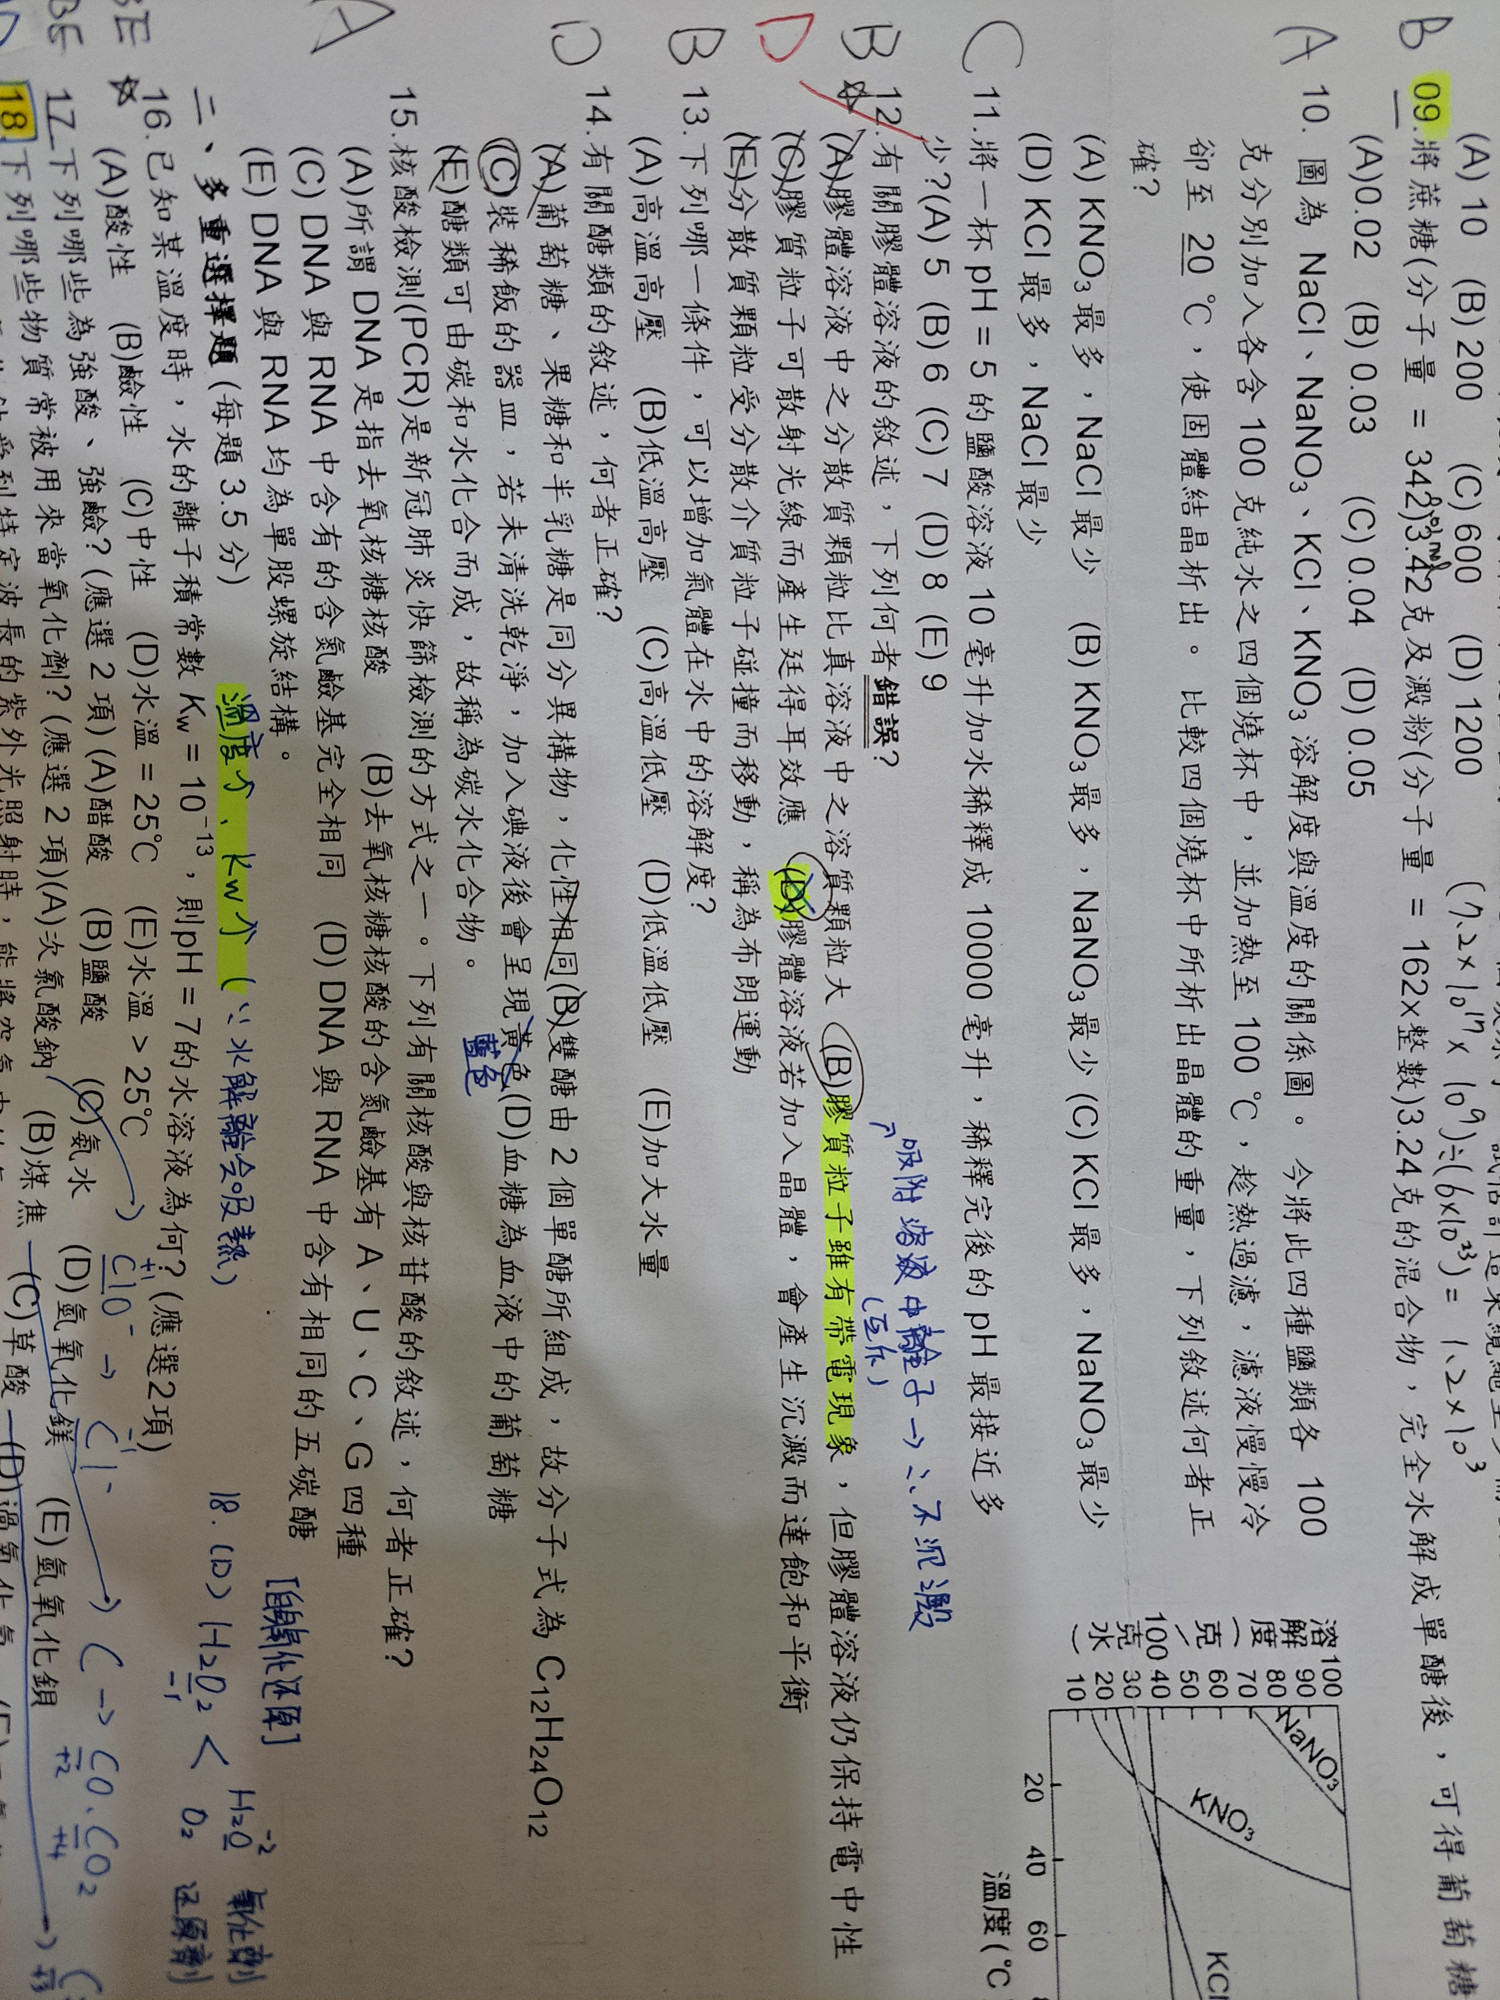 (A) 10 (B) 200 (C) 600 (D) 1200 (7.2×10¹⁷×10⁹)÷(6×10²³) = 1.2×10³
B 09.將蔗糖(分子量 = 342)3.42克及澱粉(分子量 = 162×整數)3.24克的混合物，完全水解成單醣後，可得葡萄糖
(A)0.02 (B) 0.03 (C) 0.04 (D) 0.05
A 10. 圖為 NaCl、NaNO₃、KCl、KNO₃ 溶解度與溫度的關係圖。今將此四種鹽類各 100
克分別加入各含 100 克純水之四個燒杯中，並加熱至 100 ℃，趁熱過濾，濾液慢慢冷
卻至 20 ℃，使固體結晶析出。比較四個燒杯中所析出晶體的重量，下列敘述何者正
確？
(A) KNO₃ 最多，NaCl 最少 (B) KNO₃ 最多，NaNO₃ 最少 (C) KCl 最多，NaNO₃ 最少
(D) KCl 最多，NaCl 最少
溶解度(克/100克水)
100
90
80
70
60
50
40
30
20
10
NaNO₃
KNO₃
KCl
20 40 60
溫度(℃
C 11.將一杯 pH = 5 的鹽酸溶液 10 毫升加水稀釋成 10000 毫升，稀釋完後的 pH 最接近多
少？(A) 5 (B) 6 (C) 7 (D) 8 (E) 9
吸附溶液中離子→∴不沉澱
(互斥)
B D 12.有關膠體溶液的敘述，下列何者錯誤？
(A)膠體溶液中之分散質顆粒比真溶液中之溶質顆粒大 (B)膠質粒子雖有帶電現象，但膠體溶液仍保持電中性
(C)膠質粒子可散射光線而產生廷得耳效應 (D)膠體溶液若加入晶體，會產生沉澱而達飽和平衡
(E)分散質顆粒受分散介質粒子碰撞而移動，稱為布朗運動
B 13.下列哪一條件，可以增加氣體在水中的溶解度？
(A)高溫高壓 (B)低溫高壓 (C)高溫低壓 (D)低溫低壓 (E)加大水量
D 14.有關醣類的敘述，何者正確？
(A)葡萄糖、果糖和半乳糖是同分異構物，化性相同(B)雙醣由 2 個單醣所組成，故分子式為 C₁₂H₂₄O₁₂
(C)裝稀飯的器皿，若未清洗乾淨，加入碘液後會呈現黃色(D)血糖為血液中的葡萄糖
藍色
(E)醣類可由碳和水化合而成，故稱為碳水化合物。
A 15.核酸檢測(PCR)是新冠肺炎快篩檢測的方式之一。下列有關核酸與核苷酸的敘述，何者正確？
(A)所謂 DNA 是指去氧核糖核酸 (B)去氧核糖核酸的含氮鹼基有 A、U、C、G 四種
(C) DNA 與 RNA 中含有的含氮鹼基完全相同 (D) DNA 與 RNA 中含有相同的五碳醣
(E) DNA 與 RNA 均為單股螺旋結構。
二、多重選擇題 (每題 3.5 分)
溫度↑、Kw↑ (∵水解離會吸熱)
BE 16.已知某溫度時，水的離子積常數 Kw = 10⁻¹³，則pH = 7的水溶液為何？(應選2項)
(A)酸性 (B)鹼性 (C)中性 (D)水溫 = 25℃ (E)水溫 > 25℃
BE 17.下列哪些為強酸、強鹼？(應選 2 項) (A)醋酸 (B)鹽酸 (C)氨水 (D)氫氧化鎂 (E)氫氧化鋇
18.下列哪些物質常被用來當氧化劑？(應選 2 項)(A)次氯酸鈉 (B)煤焦 (C)草酸 (D)過氧化氫
ClO⁻ → Cl⁻
+1 -1
C → CO、CO₂
+2 +4
18. (D) H₂O₂ < H₂O 氧化劑
-1 -2
O₂ 還原劑
[自身氧化還原]